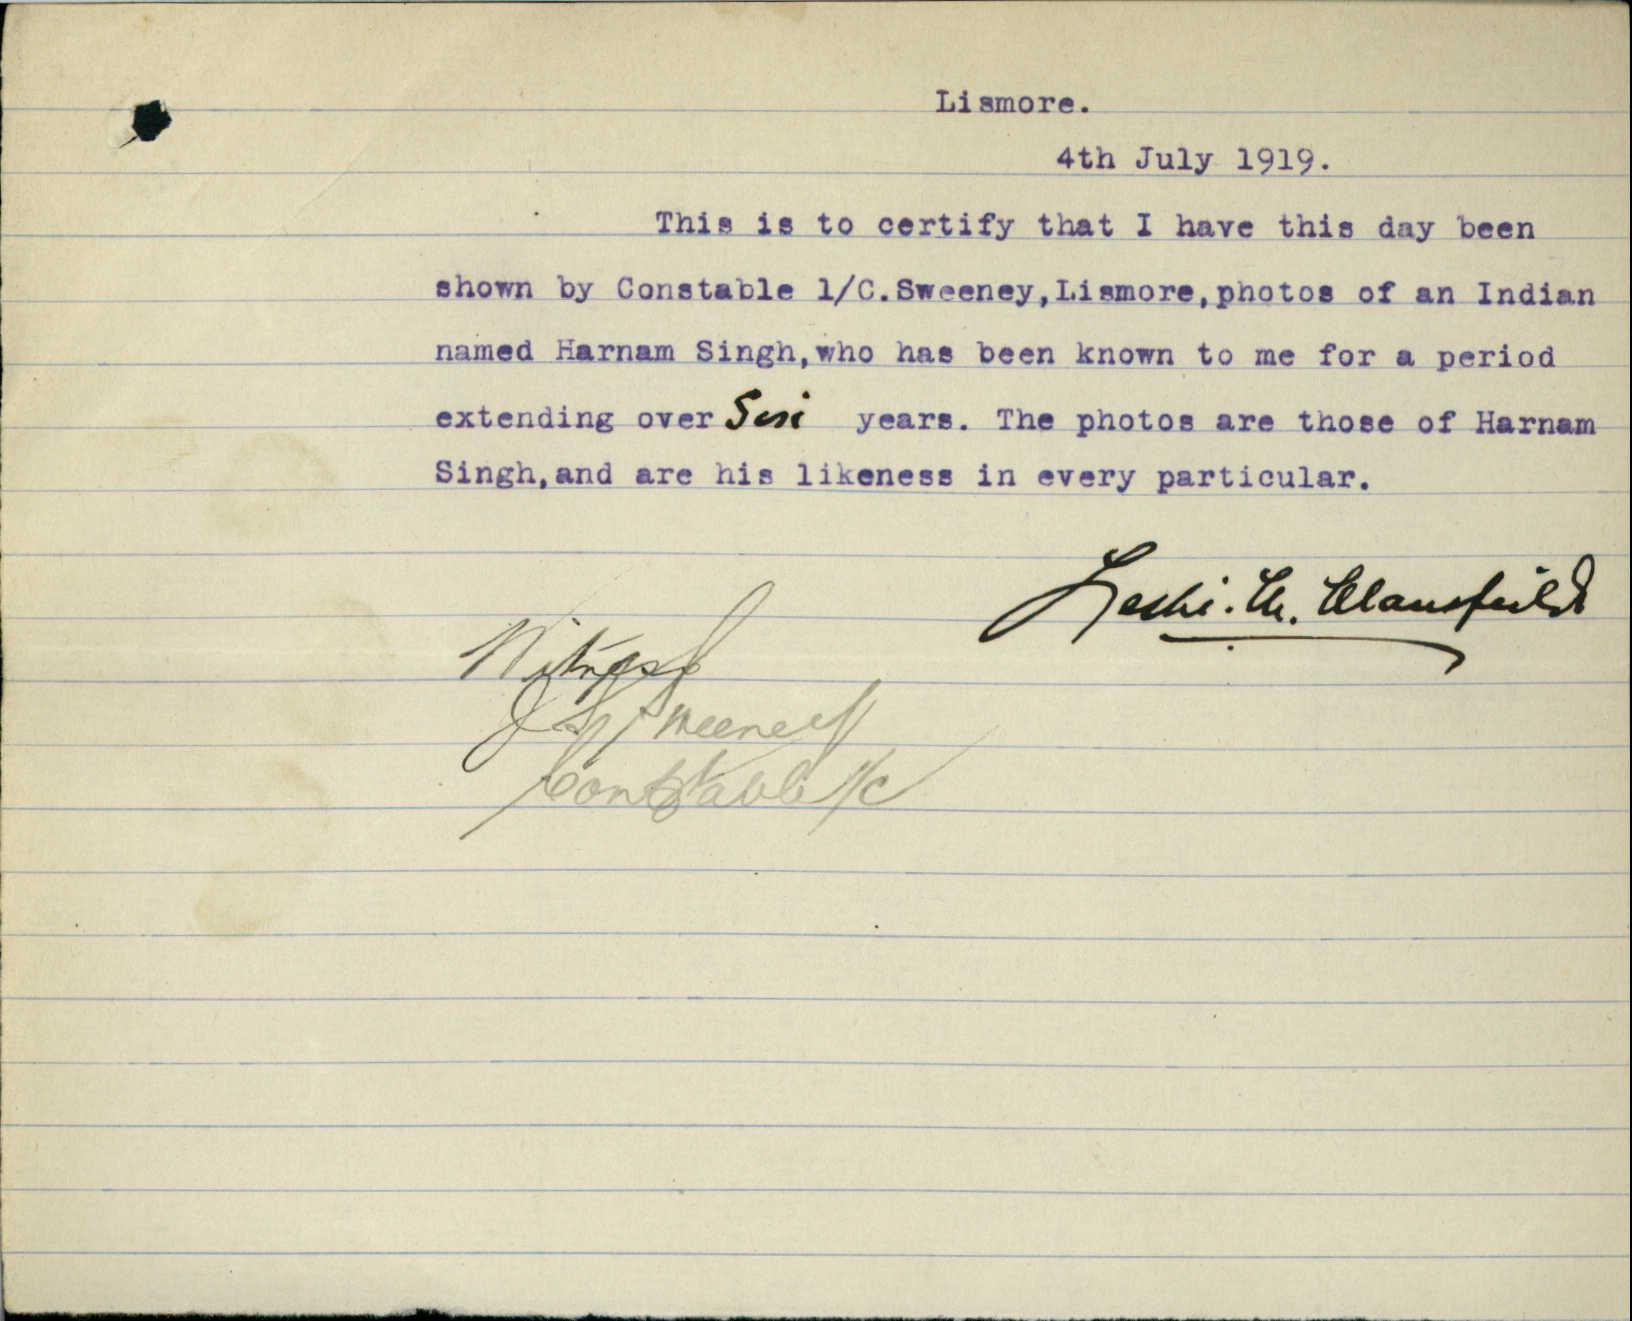 Lismore.
4th July 1919.
This is to certify that I have this day been
shown by Constable 1/C.Sweeney,Lismore,photos of an Indian
named Harnam Singh,who has been known to me for a period
extending over years. The photos are those of Harnam
Singh,and are his likeness in every particular.
Mansfield
Witness
Sweeney
Constable 1/c